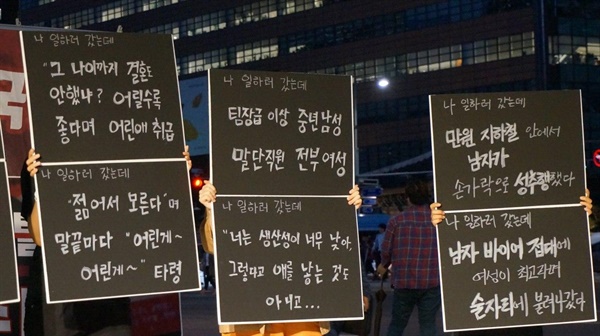 나 일하러 갔는데
"그 나이까지 결혼도
안했냐? 어릴수록
좋다며 어린애 취급
나 일하러 갔는데
"젊어서 모른다"며
말끝마다 "어린게~
어린게~" 타령
나 일하러 갔는데
팀장급 이상 중년남성
말단직원 전부여성
나 일하러 갔는데
"너는 생산성이 너무 낮아,
그렇다고 애를 낳는 것도
아니고...
나 일하러 갔는데
만원 지하철 안에서
남자가
손가락으로 성추행했다
나 일하러 갔는데
남자 바이어 접대에
여성이 최고라며
술자리에 불려나갔다